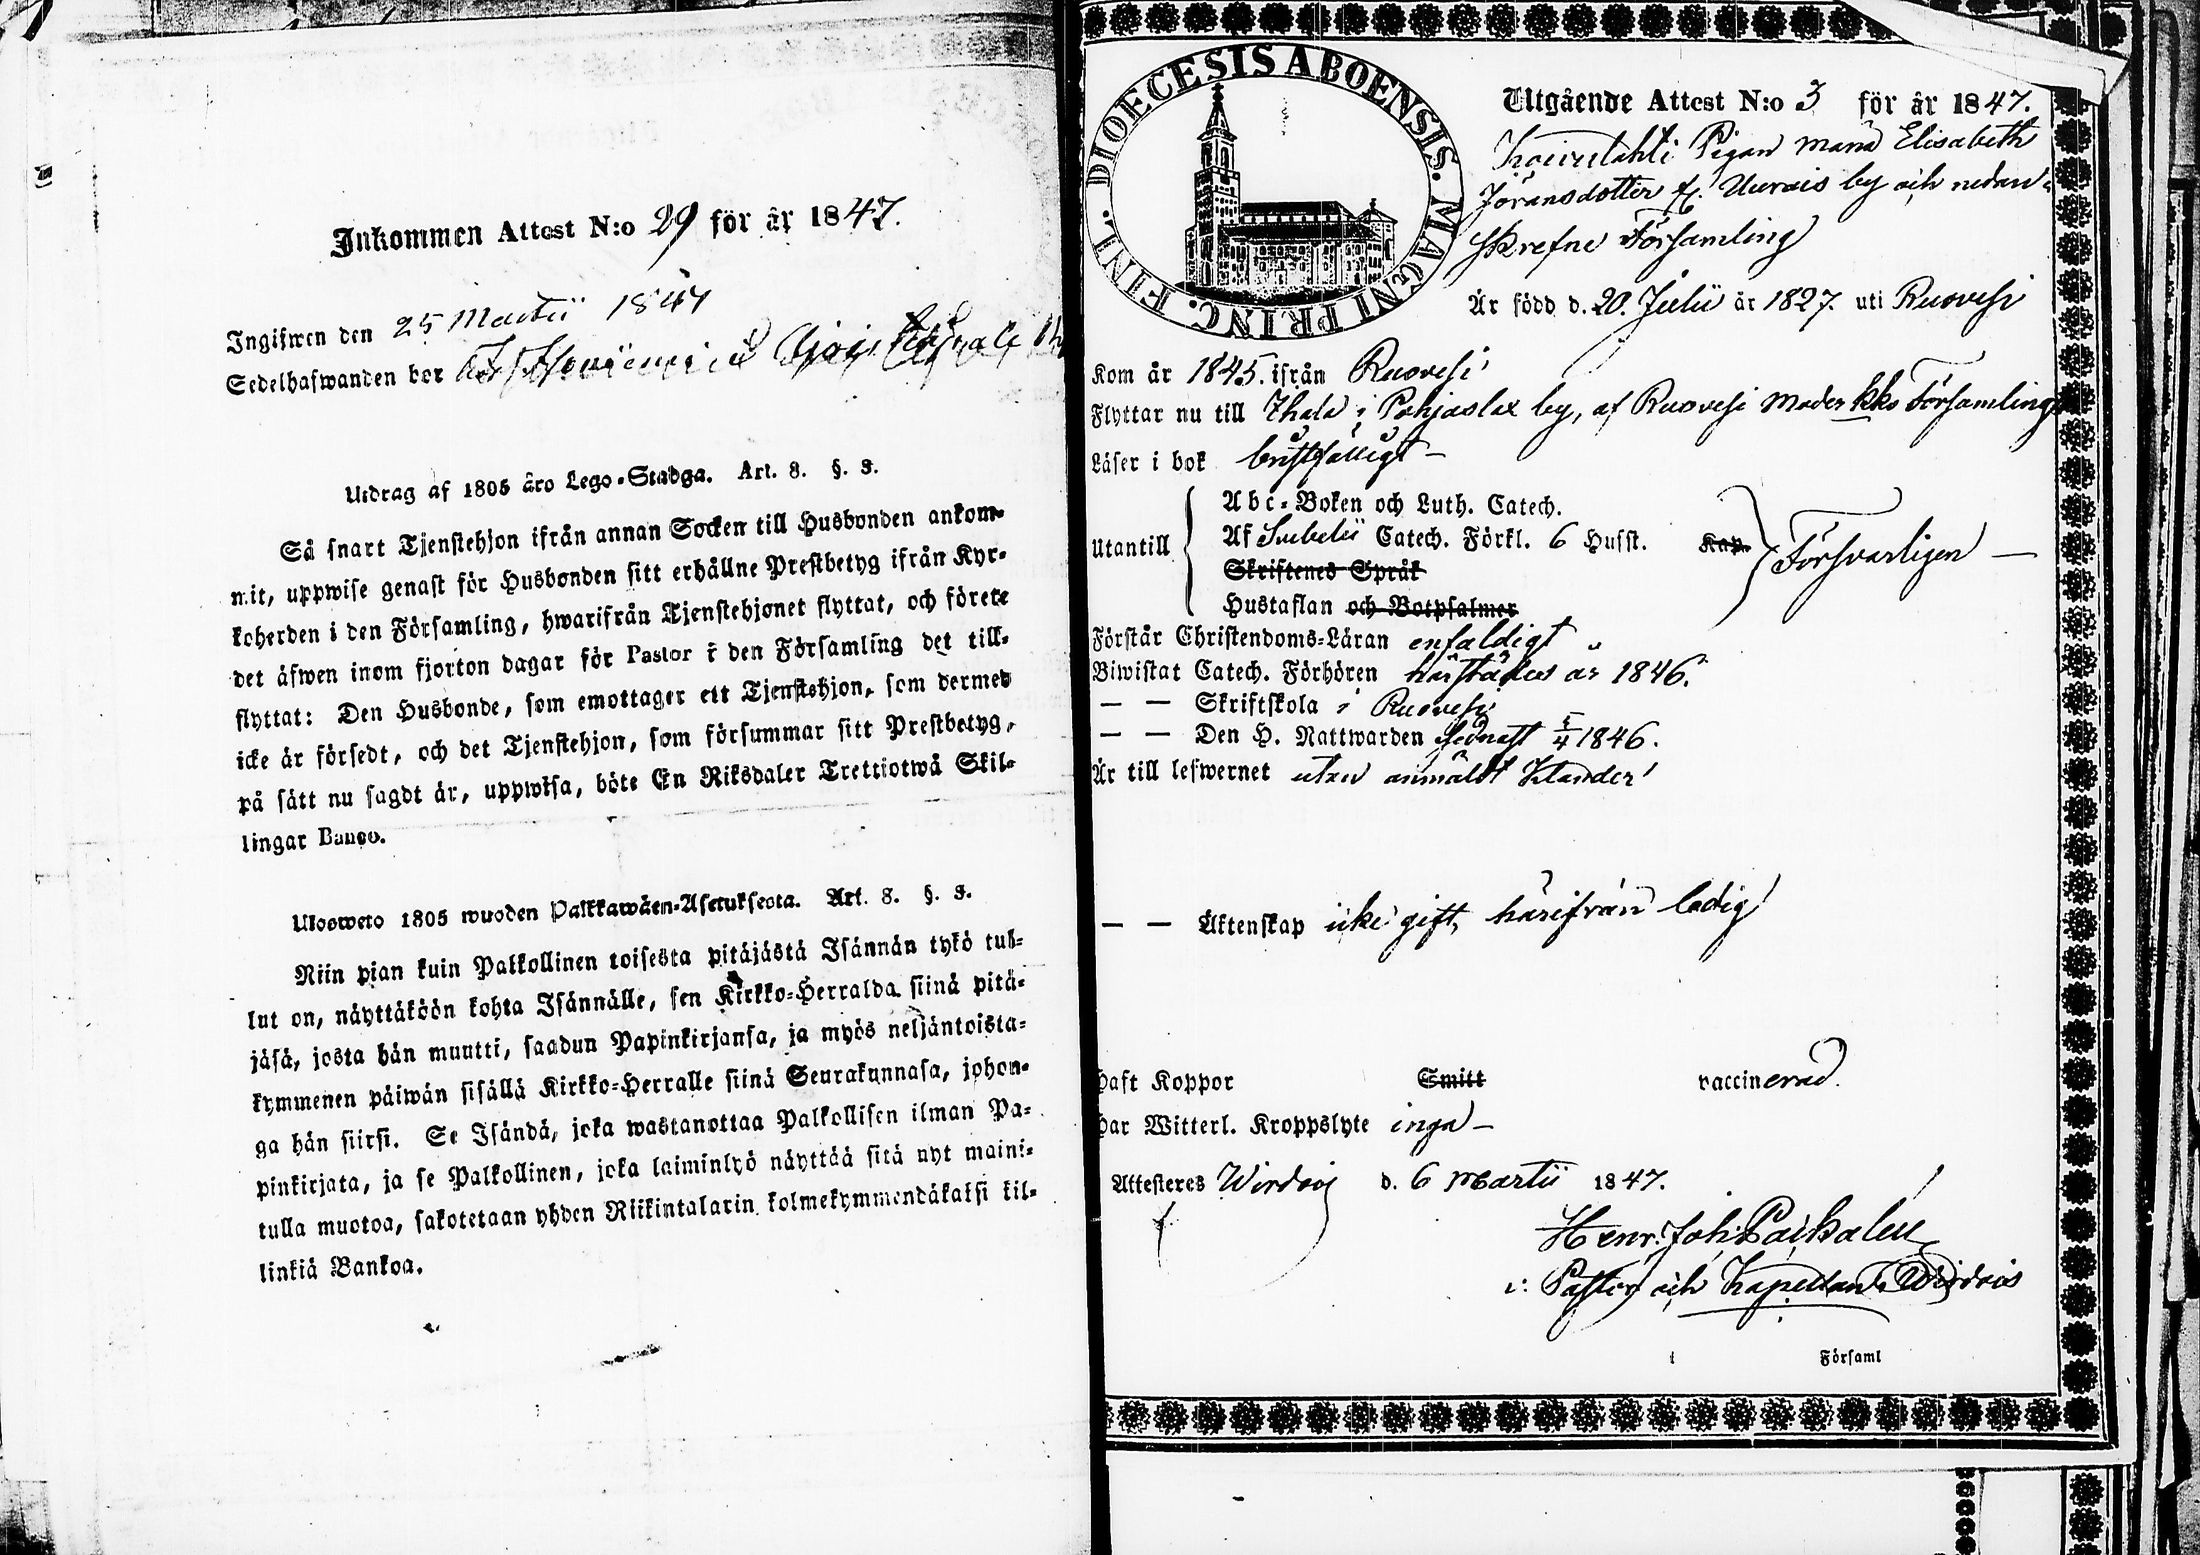 Inkommen Attest N:o 29 för år 1847.
Ingifwen den 25 Martii 1847
Sedelhafwanden bor
Utdrag af 1805 åro Lego-Stadga. Art. 8. §. 3.
Så snart Tjenstehjon ifrån annan Socken till Husbonden ankom-
mit, uppwise genast för Husbonden sitt erhållne Prestbetyg ifrån Kyr-
koherden i den Församling, hwarifrån Tjenstehjonet flyttat, och förete
det äfwen inom fjorton dagar för Pastor i den Församling det till-
flyttat: Den Husbonde, som emottager ett Tjenstehjon, som dermed
icke är försedt, och det Tjenstehjon, som försummar sitt Prestbetyg,
på sätt nu sagdt är, uppwisa, böte En Riksdaler Trettiotwå Skil-
lingar Banco.
Ulosweto 1805 wuoden Palkkawäen-Asetuksesta. Art. 8. §. 3.
Niin pian kuin Palkollinen toisesta pitäjästä Isännän tykö tul-
lut on, näyttäköön kohta Isännälle, sen Kirkko-Herralda siinä pitä-
jäsä, josta hän muutti, saadun Papinkirjansa, ja myös neljäntoista-
kymmenen päiwän sisällä Kirkko-Herralle siinä Seurakunnasa, johon-
ga hän siirsi. Se Isändä, joka wastanottaa Palkollisen ilman Pa-
pinkirjata, ja se Palkollinen, joka laiminlyö näyttää sitä nyt maini-
tulla muotoa, sakotetaan yhden Riikintalarin kolmekymmendäkaksi kil-
linkiä Bankoa.
DIOECESIS ABOENSIS. MAGNI PRINC. FINL.
Utgående Attest N:o 3 för år 1847.
Pigan Maria Elisabeth
Jöransdotter fr. Uurais by och nedan-
skrefne Församling
Är född d. 20. Julii år 1827. uti Ruovesi
Kom år 1845. ifrån Ruovesi
Flyttar nu till Ihala i Pohjaslax by, af Ruovesi Moder kko Församling
Läser i bok bristfälligt –
Utantill
Abc-Boken och Luth. Catech.
Af Svebelii Catech. Förkl. 6 Husst. Kap.
Skriftenes Språk
Hustaflan och Botpsalmer
Försvarligen –
Förstår Christendoms-Läran enfaldigt
Biwistat Catech. Förhören härstädes år 1846.
– – Skriftskola i Ruovesi
– – Den H. Nattwarden sednast 5/4 1846.
Är till lefwernet utan anmäldt klander
– – Äktenskap icke gift, härifrån ledig
Haft Koppor Smitt vaccinerad.
Har Witterl. Kroppslyte inga –
Attesteres Wirdois d. 6 Martii 1847.
Henr. Joh.
v: Pastor och Kapellan i Wirdois
i Församl